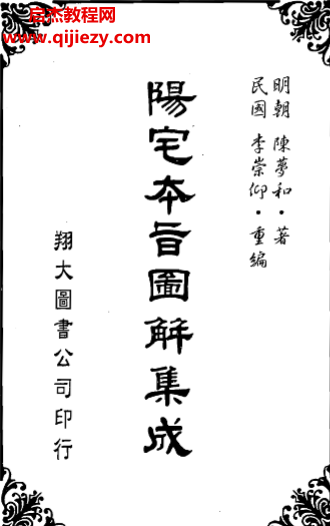 启杰教程网
www.qijiezy.com
明朝 陳夢和·著
民國 李崇仰·重編
陽宅本旨圖解集成
翔大圖書公司印行